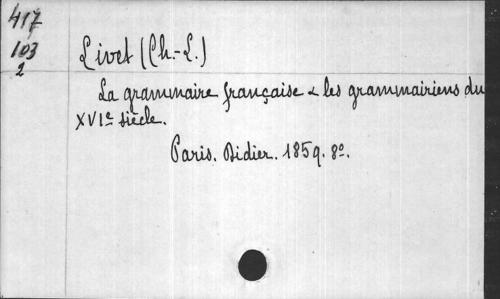 417
103
2
Livet (Ch.-L.)
La grammaire française & les grammairiens du
XVIe siècle.
Paris. Didier. 1859. 8º.